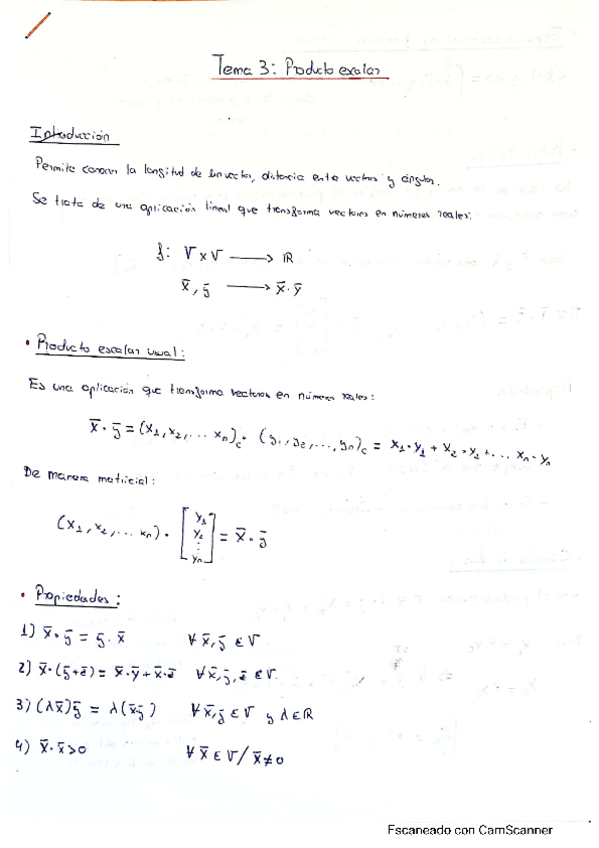 Tema 3: Producto escalar
Introducción
Permite conocer la longitud de un vector, distancia entre vectores y ángulos.
Se trata de una aplicación lineal que transforma vectores en números reales:
f: V x V → IR
x̄, ȳ → x̄·ȳ
• Producto escalar usual:
Es una aplicación que transforma vectores en números reales:
x̄·ȳ = (x₁, x₂, ... xₙ)c · (y₁, y₂, ..., yₙ)c = x₁·y₁ + x₂·y₂ + ... xₙ·yₙ
De manera matricial:
(x₁, x₂, ... xₙ) · [y₁ y₂ ⋮ yₙ] = x̄·ȳ
• Propiedades:
1) x̄·ȳ = ȳ·x̄ ∀ x̄,ȳ ∈ V
2) x̄·(ȳ+z̄) = x̄·ȳ + x̄·z̄ ∀ x̄,ȳ,z̄ ∈ V.
3) (λx̄)ȳ = λ(x̄ȳ) ∀ x̄,ȳ ∈ V y λ ∈ IR
4) x̄·x̄>0 ∀ x̄ ∈ V / x̄≠0
Escaneado con CamScanner